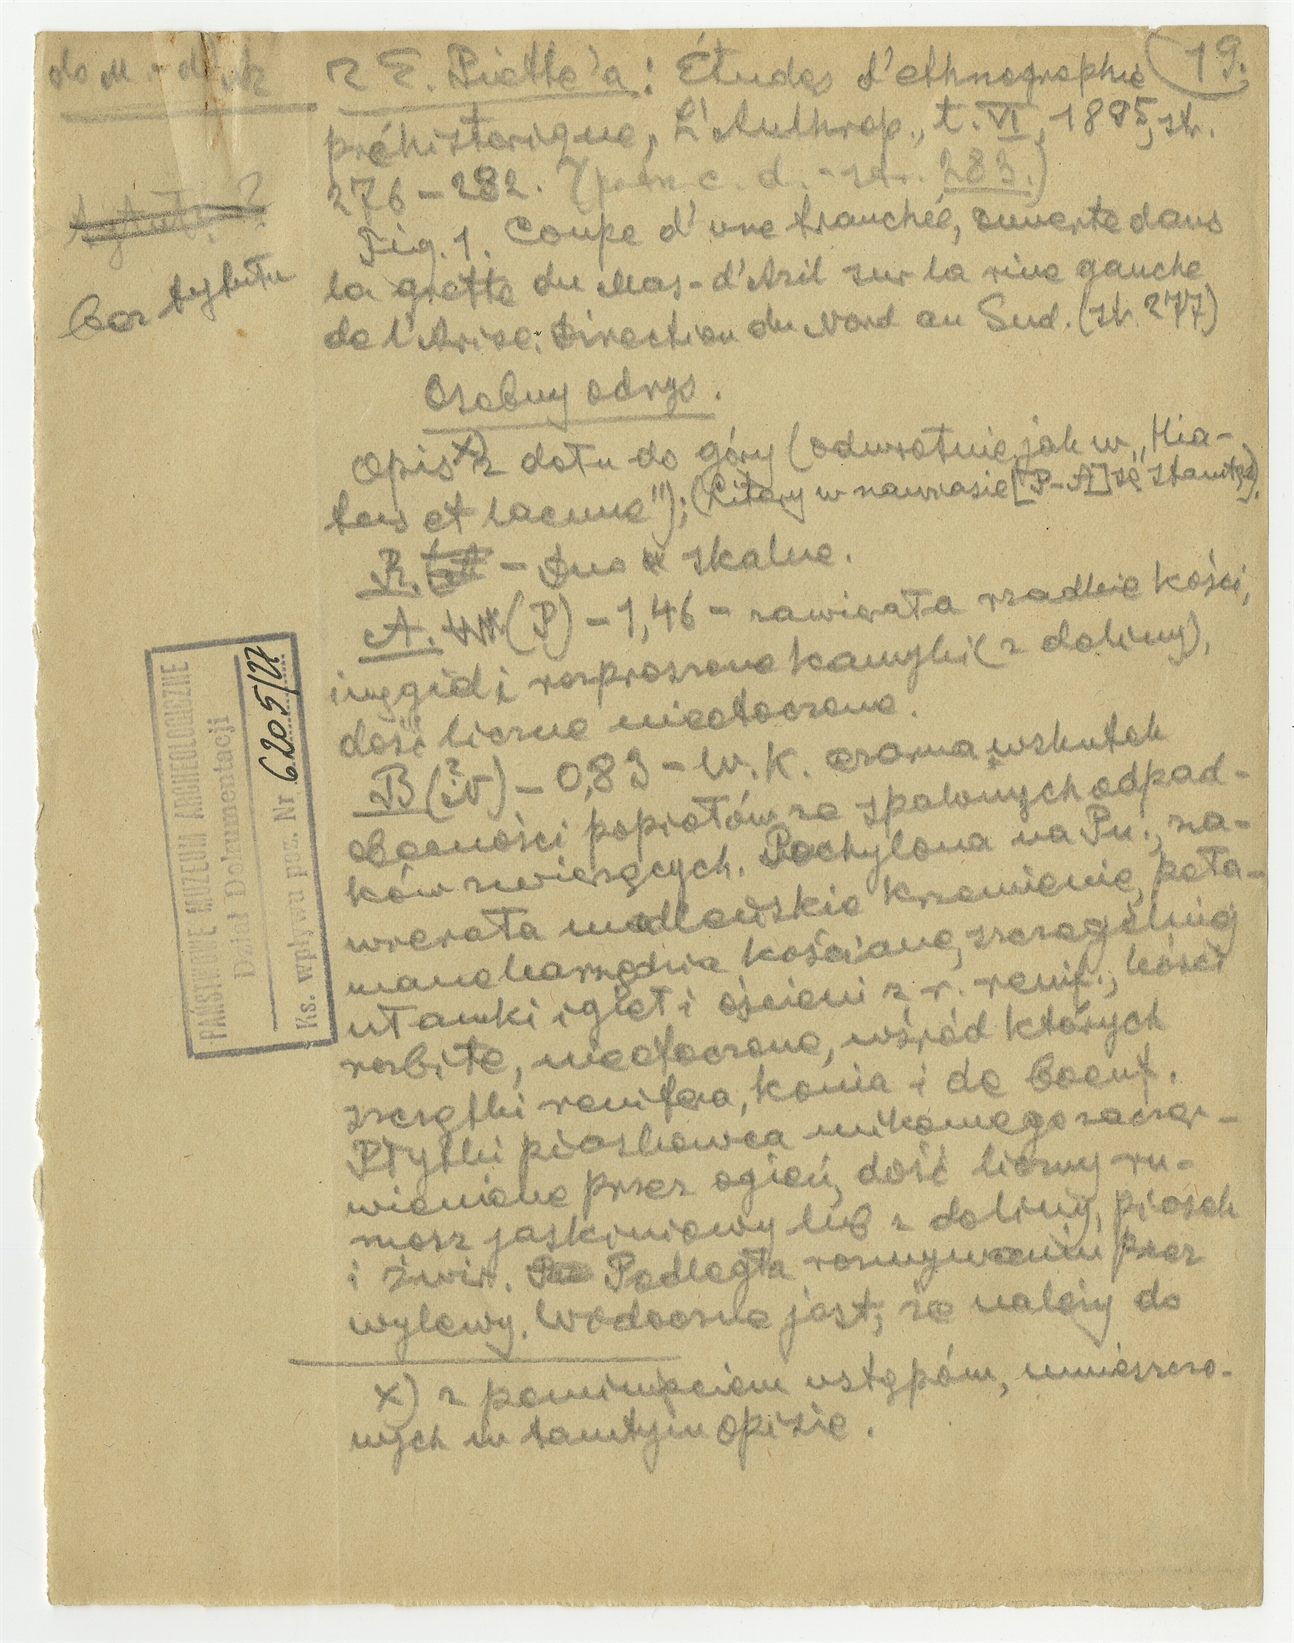 19.
z E. Piette'a: Études d'ethnographie
préhistorique, L'Anthrop., t. VI, 1895, str.
276-282. (porz. c. d. - str. 283.)
Fig. 1. Coupe d'une tranchée, ouverte dans
la grotte du Mas-d'Azil sur la rive gauche
de l'Arise. Direction du Nord au Sud. (str. 277)
Osobny odrys.
bez tytułu
Opis x) z dołu do góry (odwrotnie jak w „Hia-
tus et lacune"); (Litery w nawiasie [P-A] są stamtąd).
R. – Dno skalne.
A. (P) – 1,46 – zawierała rzadkie kości,
i węgiel i rozproszone kamyki (z doliny),
dość liczne nieotoczone.
B (N) – 0,83 – W. K. czarna wskutek
obecności popiołów ze spalonych odpad-
ków zwierzęcych. Pochylona na Pn., za-
wierała madleńskie krzemienie, poła-
mane narzędzia kościane, szczególnie
ułamki igieł i ościeni z r. renif., kości
rozbite, nieotoczone, wśród których
szczątki renifera, konia i de boeuf.
Płytki piaskowca mikowego zaczer-
wienione przez ogień, dość liczny ru-
mosz jaskiniowy lub z doliny, piasek
i żwir. Podległa rozmywaniu przez
wylewy. Widoczne jest, że należy do
x) z pominięciem ustępów, umieszczo-
nych w tamtym opisie.
PAŃSTWOWE MUZEUM ARCHEOLOGICZNE
Dział Dokumentacji
Ks. wpływu poz. Nr 6205/27